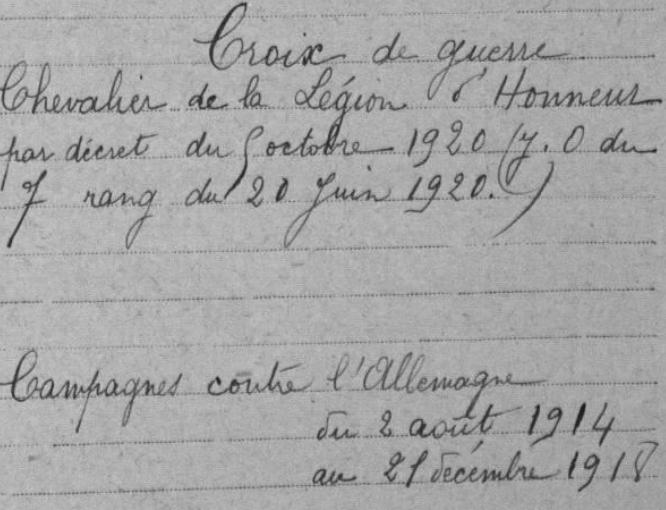 Croix de guerre
Chevalier de la Légion d'Honneur
par décret du 5 octobre 1920 (J.O du
7 rang du 20 Juin 1920.)
Campagnes contre l'Allemagne
du 2 août 1914
au 21 décembre 1918